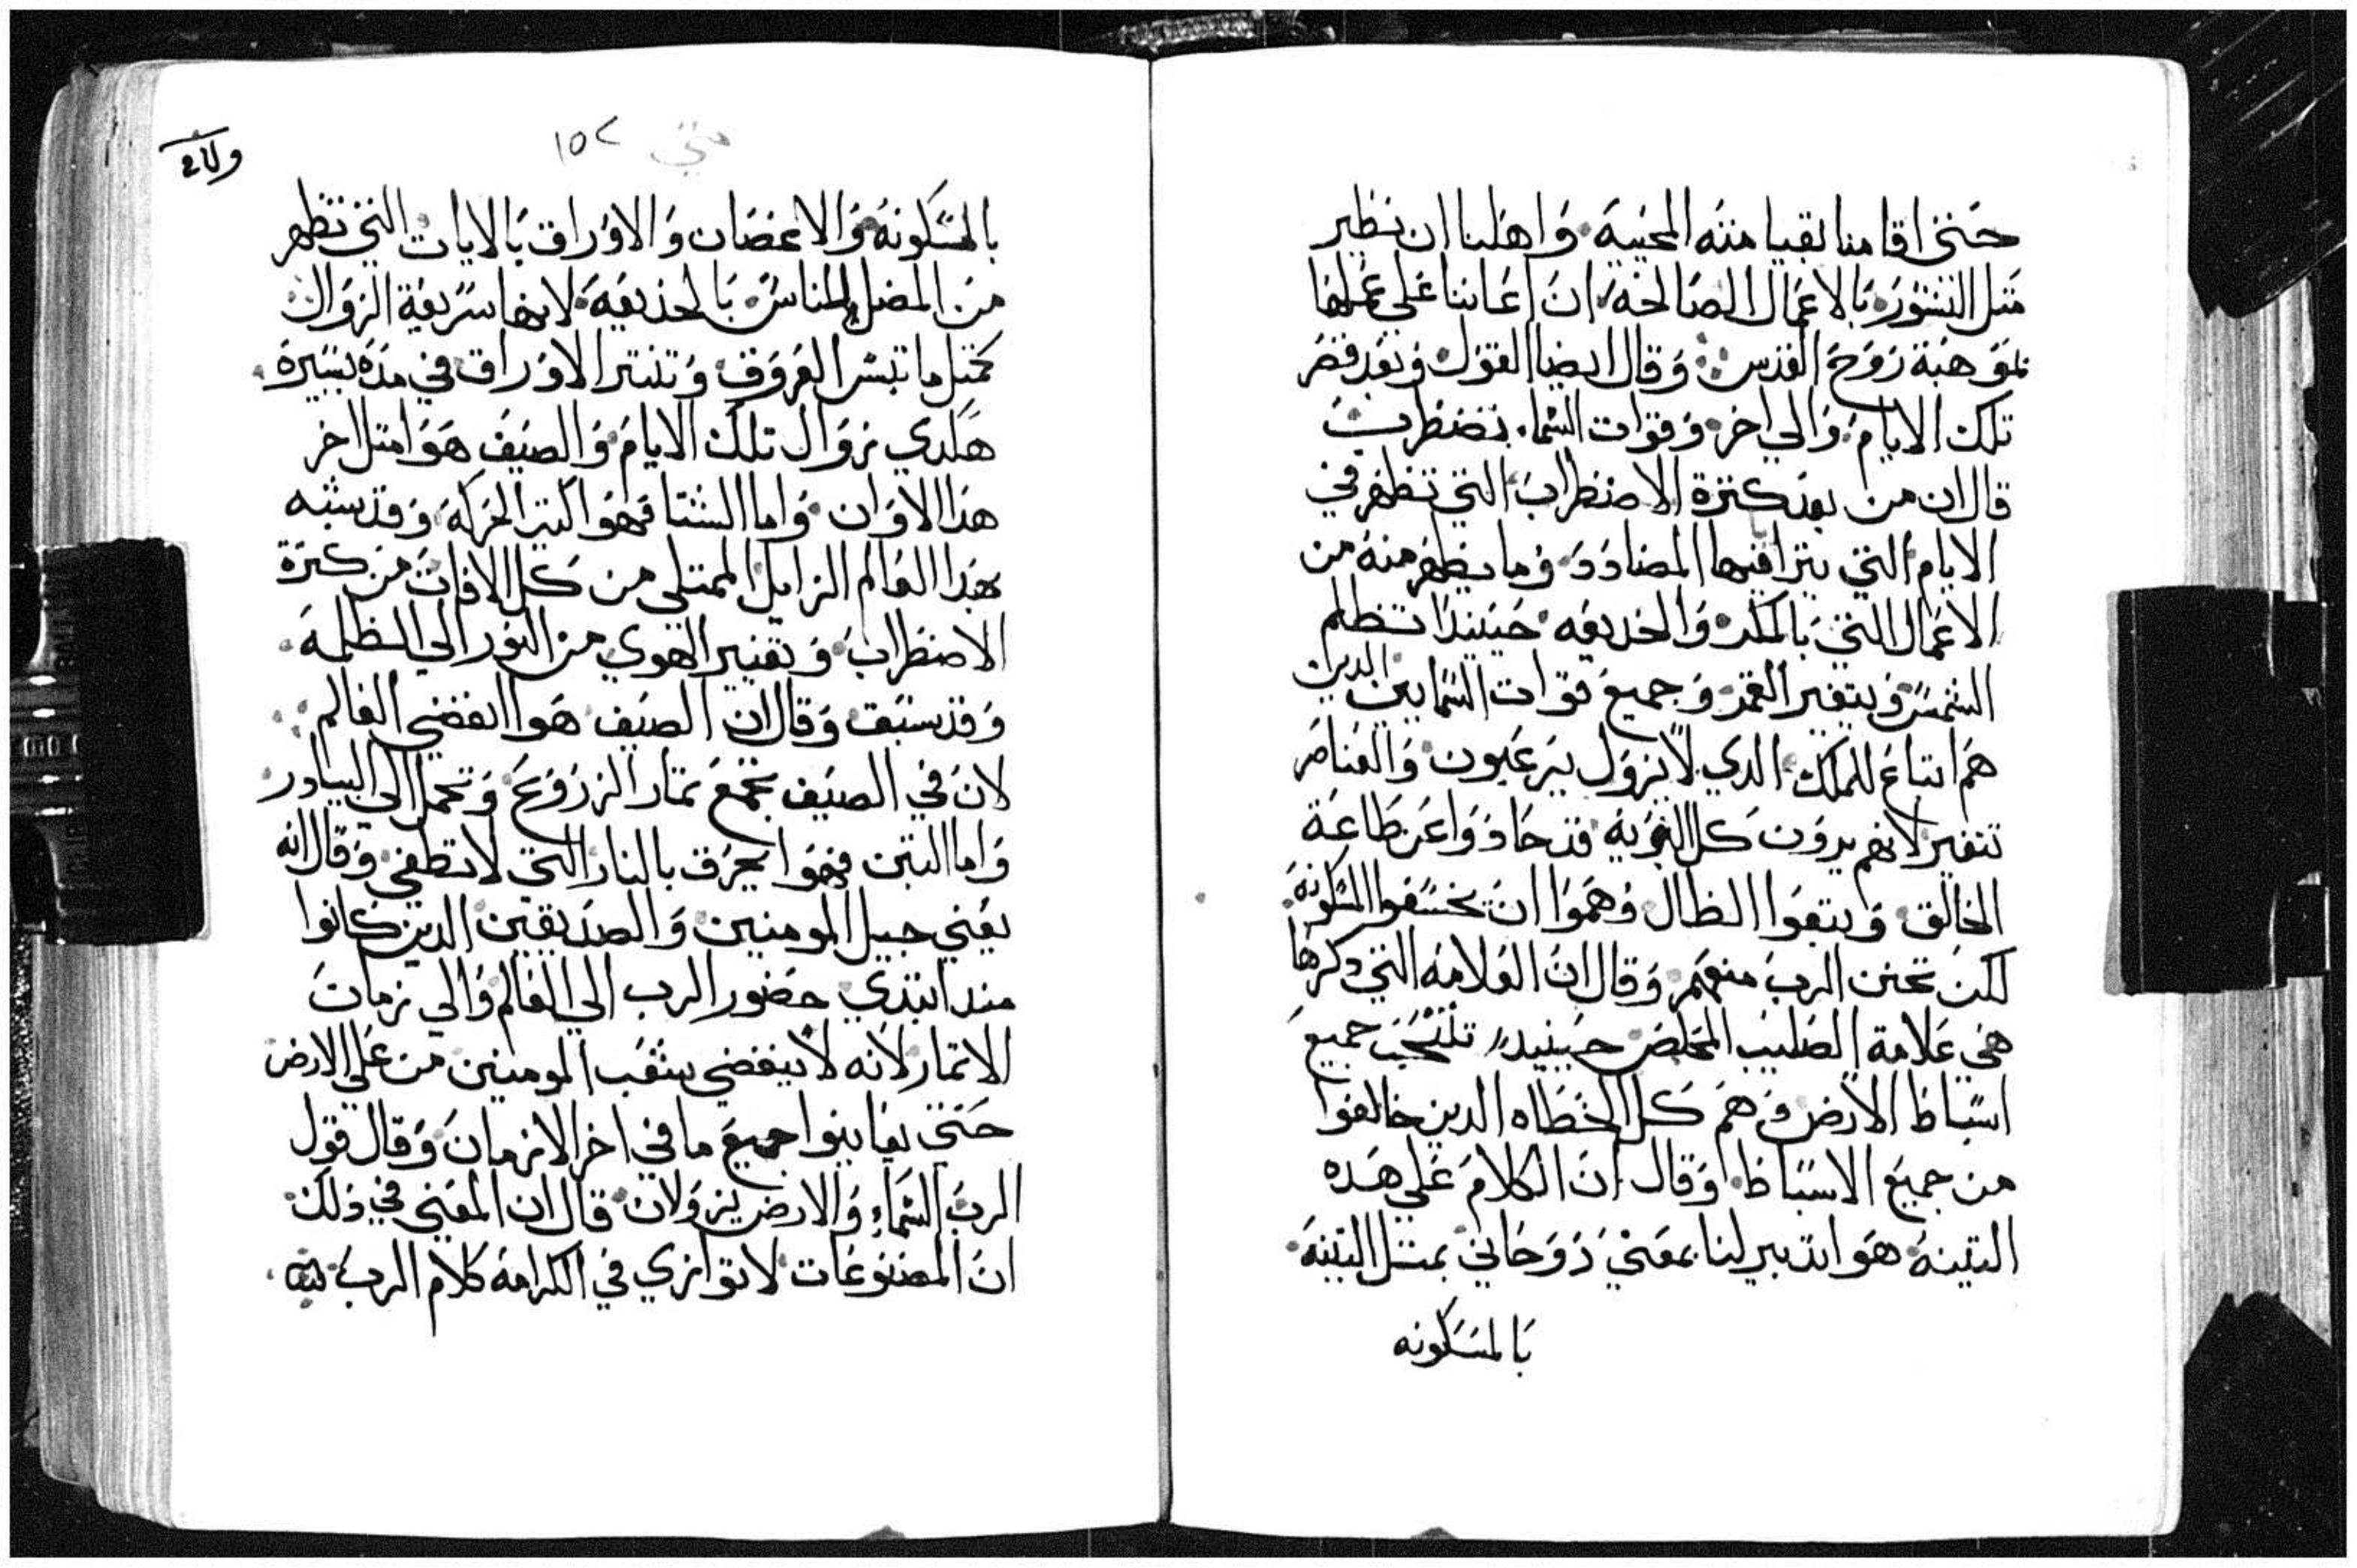 حتي اقامنا بقيامته المحييه واهلنا ان نطير
مثل النسور بالاعمال الصالحه ان اعاننا علي عملها
بموهبة روح القدس وقال ايضا القول وبعد قصر
تلك الايام والي اخر وقوات السماء تضطرب
قال ان من بعد كترة الاضطراب التي تظهر في
الايام التي يترافيها المضادد وما يظهر منه من
الاعمال التي بالمكر والخديعه حينيدا تظلم
الشمس ويتغير القمر وجميع قوات السماييين الدين
هم اتباع للملك الدي لا يزول يرعبون والعناصر
تتغير لانهم يرون كل البريه قد حادوا عن طاعة
الخالق ويتبعوا الظال وهموا ان يخسفوا المسكونه
لكن تحنن الرب منعهم وقال ان العلامه التي دكرها
هي علامة الصليب المخلص حينيد تنتحب جميع
اسباط الارض وهم كل الخطاه الدين خالفوا
من جميع الاسباط وقال ان الكلام علي هده
التينه هوا تدبير لنا بمعني روحاني بمثل التينه
بالمسكونه
متي ١٥٢
بالمسكونه والاغصان والاوراق بالايات التي تظهر
من المضل للناس بالخديعه لانها سريعة الزوال
كمتل ما تيبس العروق وتنتر الاوراق في مده يسيره
هكدي زوال تلك الايام والصيف هوا متل اخر
هدا الاوان واما الشتا فهوا كتير الحركه وقد سبه
بهدا العالم الزايل الممتلي من كل الافات من كترة
الاضطراب وتغيير الهوي من النور الي الظلمه
وقد سبق وقال ان الصيف هوا انقضي العالم
لان في الصيف تجمع تمار الزروع وتحمل الي البيادر
واما التبن فهوا يحرق بالنار التي لا تطفي وقال انه
يعني جيل المومنين والصديقين الدين كانوا
مند ابتدي حضور الرب الي العالم والي زمان
الاتمار لانه لا ينقضي شعب المومنين من علي الارض
حتي يعاينوا جميع ما في اخر الازمان وقال قول
الرب السماء والارض يزولان قال ان المعني في دلك
ان المصنوعات لا توازي في الكرامه كلام الرب